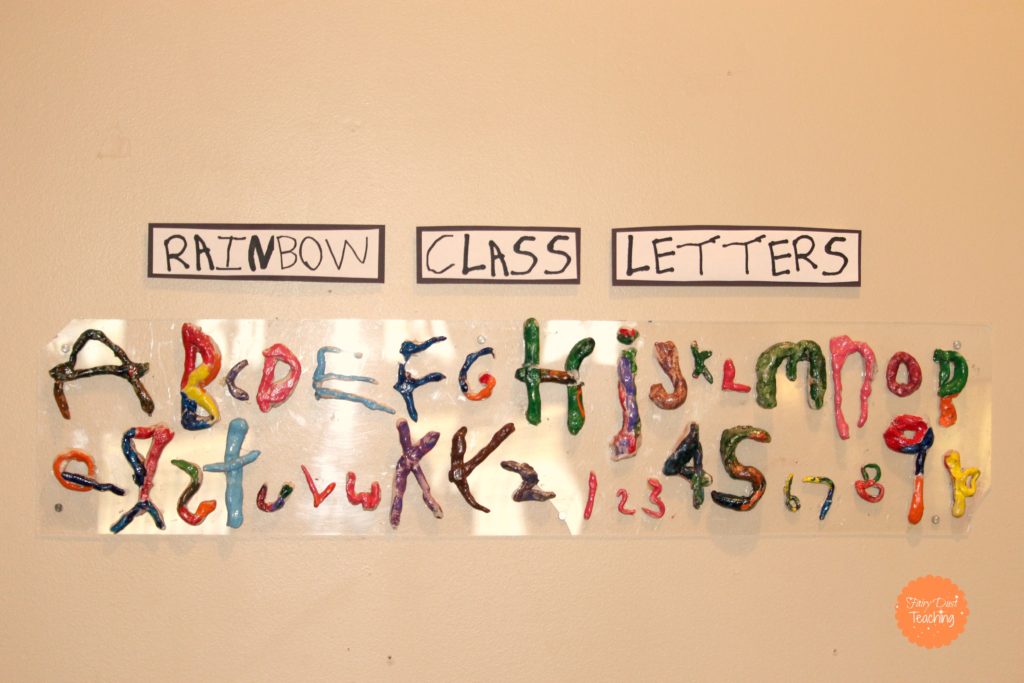 RAINBOW CLASS LETTERS
A B c D E F G H i J K L M n O P
Q R S t u v w X Y Z 1 2 3 4 5 6 7 8 9
Fairy Dust
Teaching